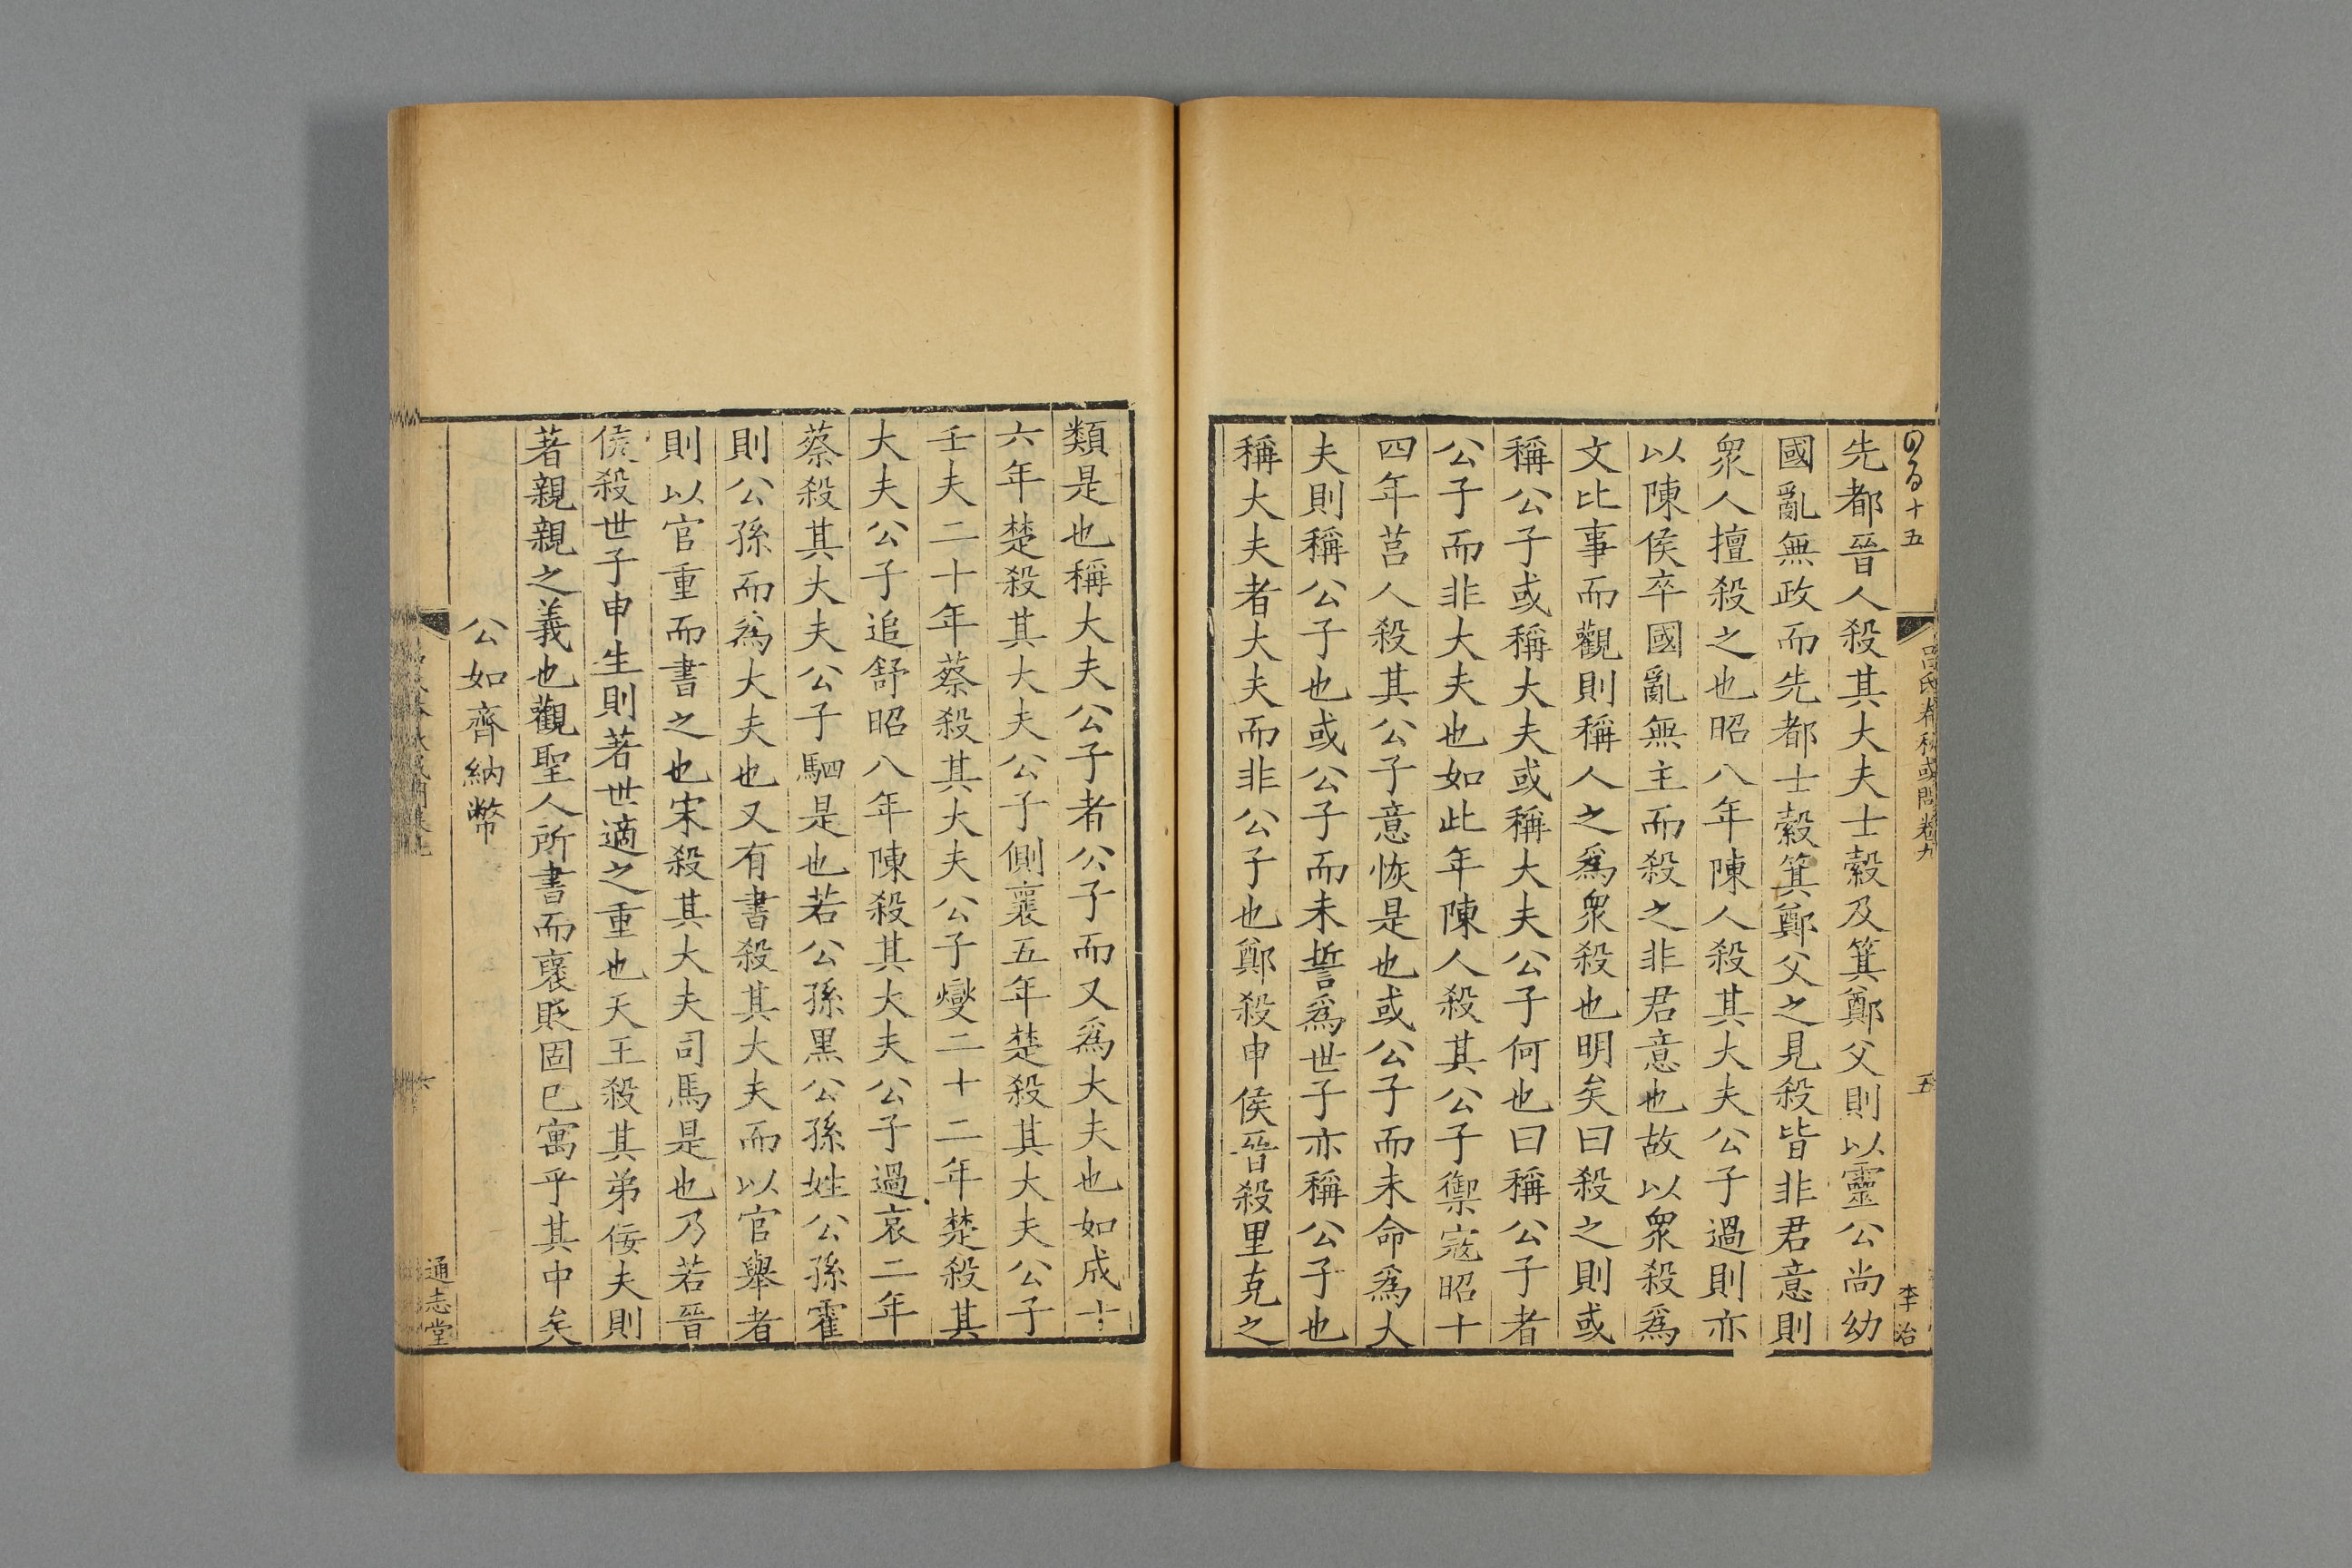 十五
呂氏春秋或問卷九
五
李冶
先都晉人殺其大夫士縠及箕鄭父則以靈公尚幼
國亂無政而先都士縠箕鄭父之見殺皆非君意則
衆人擅殺之也昭八年陳人殺其大夫公子過則亦
以陳侯卒國亂無主而殺之非君意也故以衆殺爲
文比事而觀則稱人之爲衆殺也明矣曰殺之則或
稱公子或稱大夫或稱大夫公子何也曰稱公子者
公子而非大夫也如此年陳人殺其公子禦寇昭十
四年莒人殺其公子意恢是也或公子而未命爲大
夫則稱公子也或公子而未誓爲世子亦稱公子也
稱大夫者大夫而非公子也鄭殺申侯晉殺里克之
類是也稱大夫公子者公子而又爲大夫也如成十
六年楚殺其大夫公子側襄五年楚殺其大夫公子
壬夫二十年蔡殺其大夫公子燮二十二年楚殺其
大夫公子追舒昭八年陳殺其大夫公子過哀二年
蔡殺其大夫公子駟是也若公孫黑公孫姓公孫霍
則公孫而爲大夫也又有書殺其大夫而以官舉者
則以官重而書之也宋殺其大夫司馬是也乃若晉
侯殺世子申生則著世適之重也天王殺其弟佞夫則
著親親之義也觀聖人所書而襃貶固已寓乎其中矣
公如齊納幣
六
通志堂